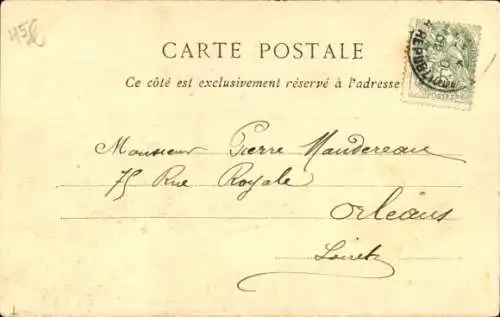 45€
CARTE POSTALE
Ce côté est exclusivement réservé à l'adresse
Monsieur Pierre Maudereau
75 Rue Royale
Orléans
Loiret